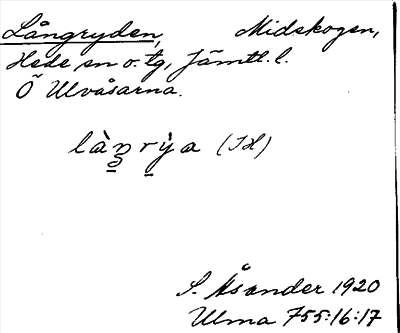 Långryden, Midskogen,
Hede sn o. tg, Jämtl. l.
Ö Ulvåsarna.
làŋrỳa (IH)
S. Åsander 1920
Ulma 755:16:17